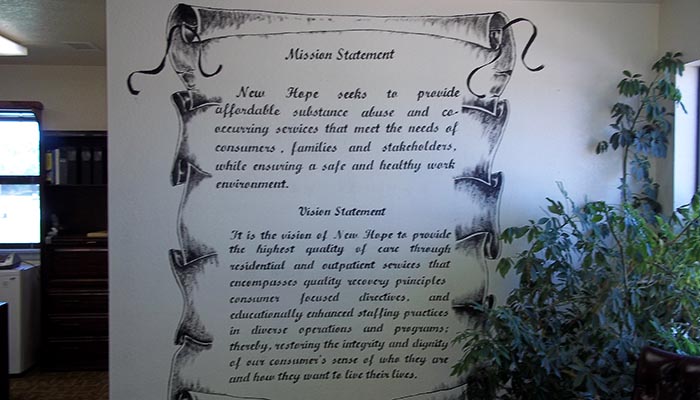 Mission Statement
New Hope seeks to provide
affordable substance abuse and co-
occurring services that meet the needs of
consumers, families and stakeholders,
while ensuring a safe and healthy work
environment.
Vision Statement
It is the vision of New Hope to provide
the highest quality of care through
residential and outpatient services that
encompasses quality recovery principles
consumer focused directives, and
educationally enhanced staffing practices
in diverse operations and programs;
thereby, restoring the integrity and dignity
of our consumer's sense of who they are
and how they want to live their lives.